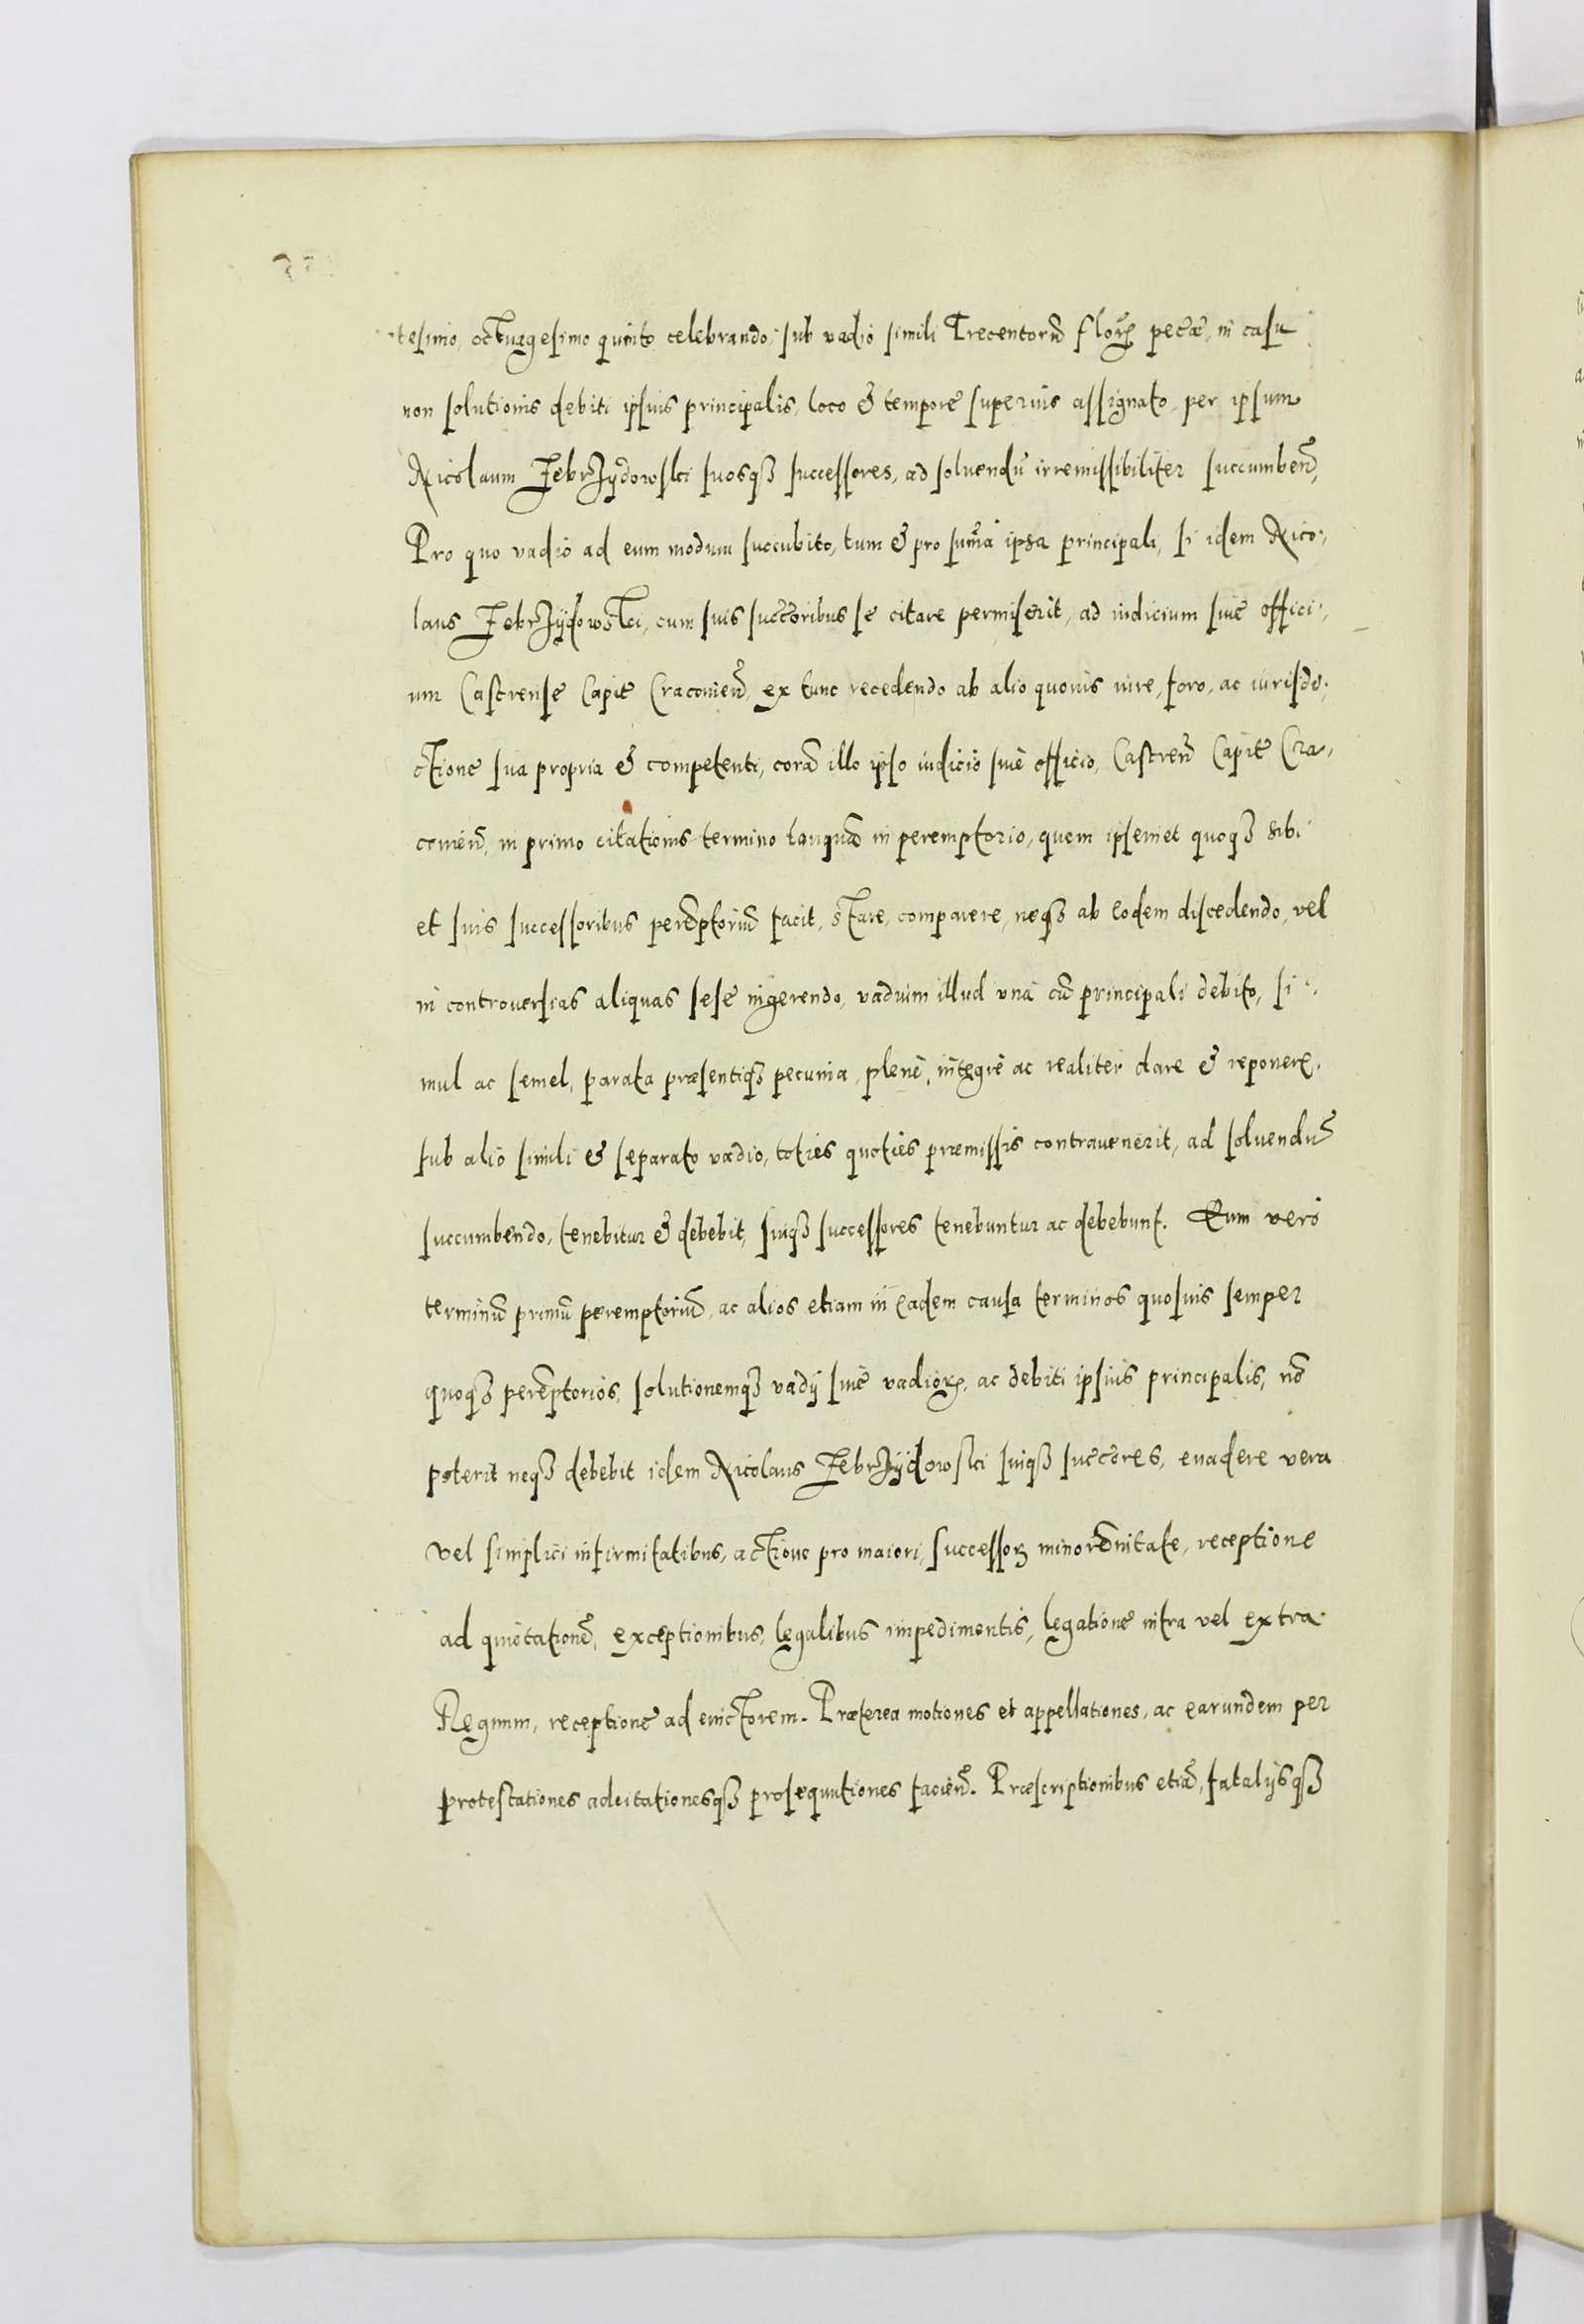 tesimo, octuagesimo quinto celebrando, sub vadio simili Trecentorũ floꝝ pecũ, in casu
non solutionis debiti ipsius principalis, loco & tempore superius assignato, per ipsum
Nicolaum Zebrzydowski suosqꝫ successores, ad soluendũ irremissibiliter succumbeñ,
Pro quo vadio ad eum modum succubito, tum & pro sum̃a ipsa principali, si idem Nico:
laus Zebrzÿdowski, cum suis succ̃oribus se citare permiserit, ad iudicium siue offici:
um Castrense Capit̃ Cracovieñ, ex tunc recedendo ab alio quouis iure, foro, ac iurisdi:
ctione sua propria & competenti, corã illo ipso iudicio siuè officio, Castreñ Capit̃ Cra:
couieñ, in primo citationis termino tanquã in peremptorio, quem ipsemet quoqꝫ sibi
et suis successoribus perẽptoriũ facit, stare, comparere, neqꝫ ab eodem discedendo, vel
in controuersias aliquas sese ingerendo, vadium illud vnà cũ principali debito, si:
mul ac semel, parata præsentiqꝫ pecunia, plenè, integrè ac realiter dare & reponere,
sub alio simili & separato vadio, toties quoties præmissis contrauenerit, ad soluendũ
succumbendo, tenebitur & debebit, suiqꝫ successores tenebuntur ac debebunt. Eum verò
terminũ primũ peremptoriũ, ac alios etiam in eadem causa terminos quosuis semper
quoqꝫ perẽptorios, solutionemqꝫ vadij siuè vadioꝝ, ac debiti ipsius principalis, nõ
poterit neqꝫ debebit idem Nicolaus Zebrzÿdowski suiqꝫ succ̃ores, euadere vera
vel simplici infirmitatibus, actione pro maiori, successoꝝ minorẽnitate, receptione
ad quietationẽ, exceptionibus, legalibus impedimentis, legatione intra vel extra
Regnum, receptione ad euictorem. Præterea motiones et appellationes, ac earundem per
protestationes aduitationesqꝫ prosequutiones facieñ. Præscriptionibus etiã, fatalijsqꝫ